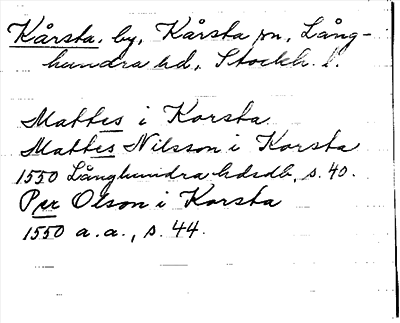 Kårsta, by, Kårsta sn, Lång-
hundra hd, Stockh. l.
Mattes i Korsta
Mattes Nilsson i Korsta
1550 Långhundra hdsdb, s. 40.
Per Olson i Korsta
1550 a.a., s. 44.